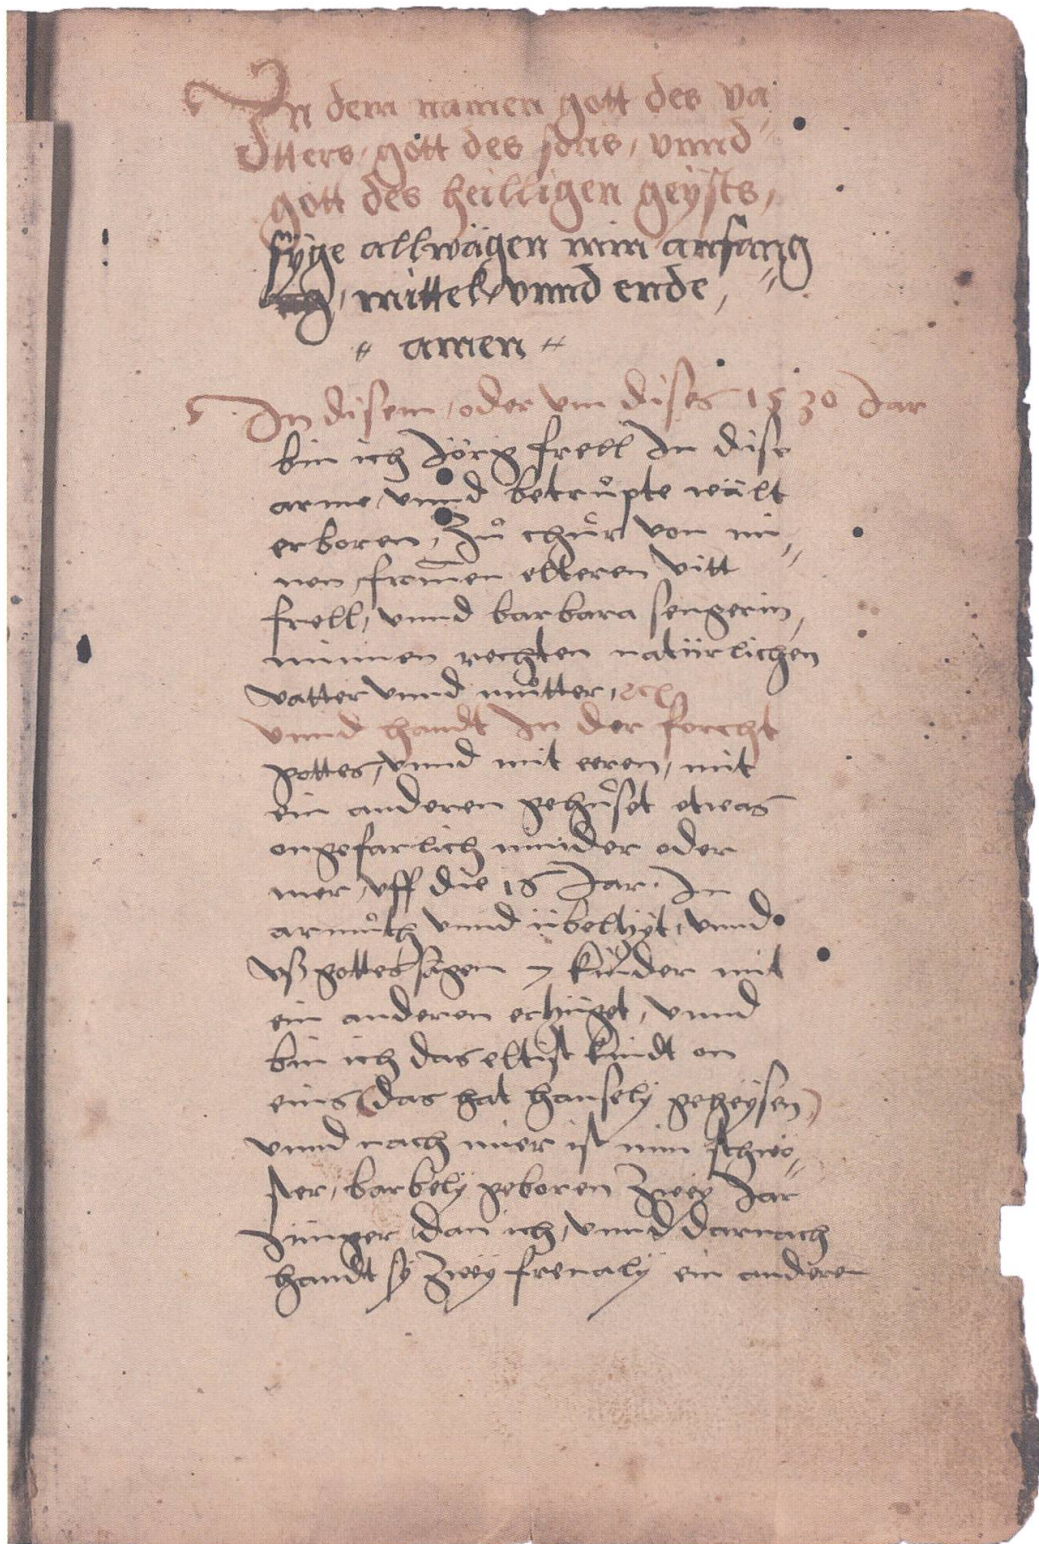 In dem namen gott des va„
tters, gott des sons, vnnd
gott des heilligen geÿsts,
sÿge allwägen min anfang
mittel, vnnd ende, „
„ amen „
In disem, oder vm dises 1530 Jar
bin ich Jörg frell In dise
arme, vnnd betrüpte wält
erboren, Zů chůr von mi„
nen from̄en elteren vitt
frell, vnnd barbara sengerin,
minnen rechten natürlichen
vatter vnnd můtter,
vnnd handt In der forcht
gottes, vnnd mit eeren, mit
ein anderen gehuset etwas
ongefarlich minder oder
mer, vff die 16 Jar. In
armůth vnnd übelzÿt, vnnd
vß gottes sägen 7 kinder mit
ein anderen erzüget, vnnd
bin ich das eltist kindt on
eins (das hat hanselÿ geheÿsen)
vnnd nach mier ist min schwö„
ster, barbelÿ geboren Zweÿ Jar
Jünger dan ich, vnnd darnach
handt sÿ Zweÿ frenalÿ ein anderen